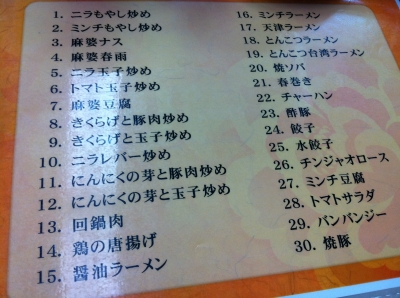 1. ニラもやし炒め
2. ミンチもやし炒め
3. 麻婆ナス
4. 麻婆春雨
5. ニラ玉子炒め
6. トマト玉子炒め
7. 麻婆豆腐
8. きくらげと豚肉炒め
9. きくらげと玉子炒め
10. ニラレバー炒め
11. にんにくの芽と豚肉炒め
12. にんにくの芽と玉子炒め
13. 回鍋肉
14. 鶏の唐揚げ
15. 醤油ラーメン
16. ミンチラーメン
17. 天津ラーメン
18. とんこつラーメン
19. とんこつ台湾ラーメン
20. 焼ソバ
21. 春巻き
22. チャーハン
23. 酢豚
24. 餃子
25. 水餃子
26. チンジャオロース
27. ミンチ豆腐
28. トマトサラダ
29. バンバンジー
30. 焼豚